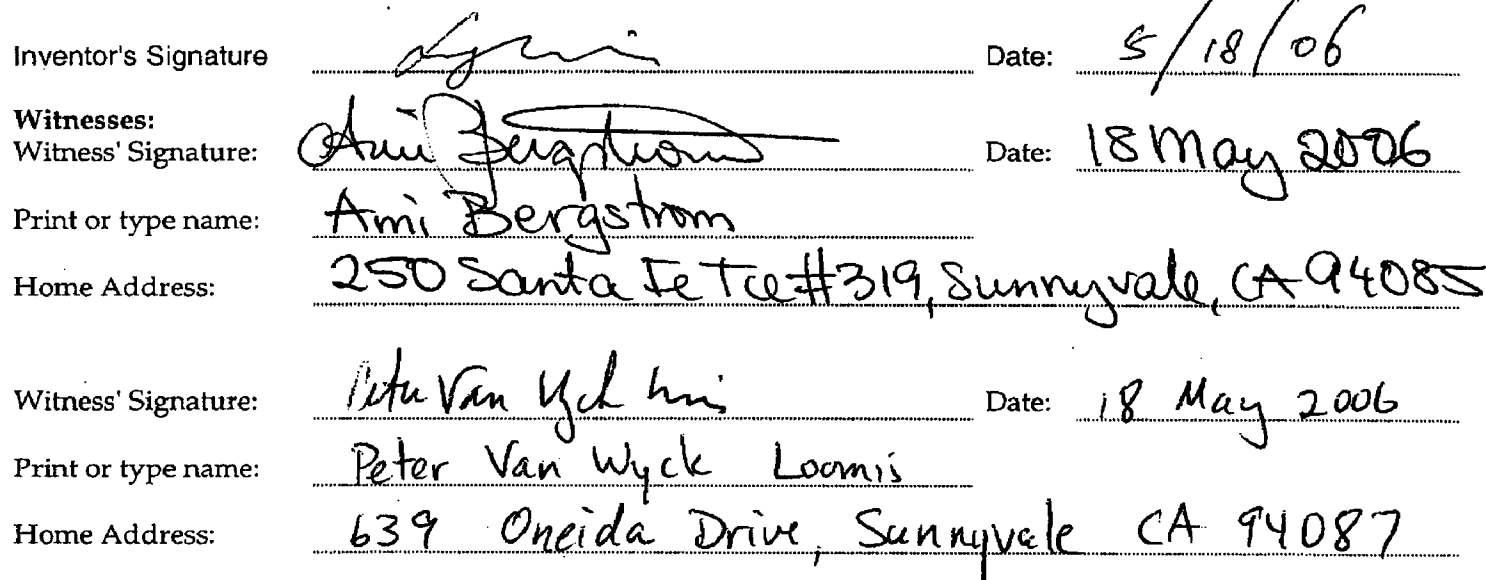 Inventor's Signature Date: 5/18/06
Witnesses:
Witness' Signature: Ami Bergstrom Date: 18 May 2006
Print or type name: Ami Bergstrom
Home Address: 250 Santa Fe Tce #319, Sunnyvale, CA 94085
Witness' Signature: Peter Van Wyck Date: 18 May 2006
Print or type name: Peter Van Wyck Loomis
Home Address: 639 Oneida Drive, Sunnyvale CA 94087